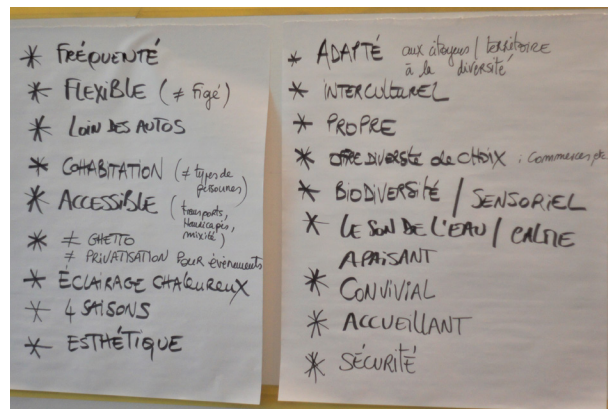 * FRÉQUENTÉ
* FLEXIBLE (≠ figé)
* LOIN DES AUTOS
* COHABITATION (≠ types de
personnes)
* ACCESSIBLE (transports,
Handicapés,
mixité)
* ≠ GHETTO
≠ PRIVATISATION POUR événements
* ÉCLAIRAGE CHALEUREUX
* 4 SAISONS
* ESTHÉTIQUE
* ADAPTÉ aux citoyens / territoire
à la diversité
* INTERCULTUREL
* PROPRE
* DIVERSITÉ de CHOIX : Commerces, etc.
* BIODIVERSITÉ / SENSORIEL
* LE SON DE L'EAU / CALME
APAISANT
* CONVIVIAL
* ACCUEILLANT
* SÉCURITÉ